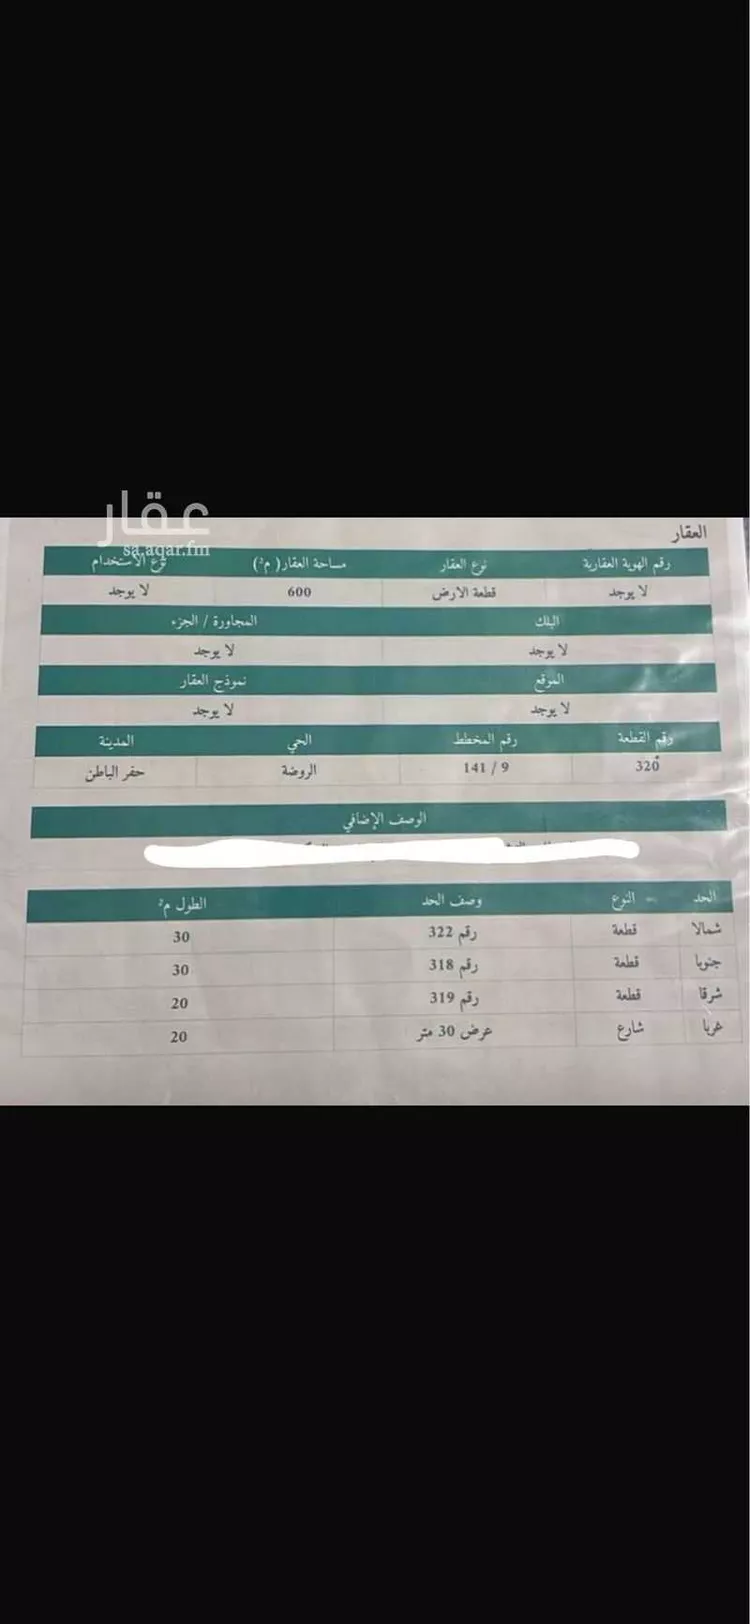 عقار
sa.aqar.fm
العقار
رقم الهوية العقارية نوع العقار مساحة العقار( م²) نوع الاستخدام
لا يوجد قطعة الارض 600 لا يوجد
البلك المجاورة / الجزء
لا يوجد لا يوجد
الموقع نموذج العقار
لا يوجد لا يوجد
رقم القطعة رقم المخطط الحي المدينة
320 141 / 9 الروضة حفر الباطن
الوصف الإضافي
الحد النوع وصف الحد الطول م²
شمالا قطعة رقم 322 30
جنوبا قطعة رقم 318 30
شرقا قطعة رقم 319 20
غربا شارع عرض 30 متر 20